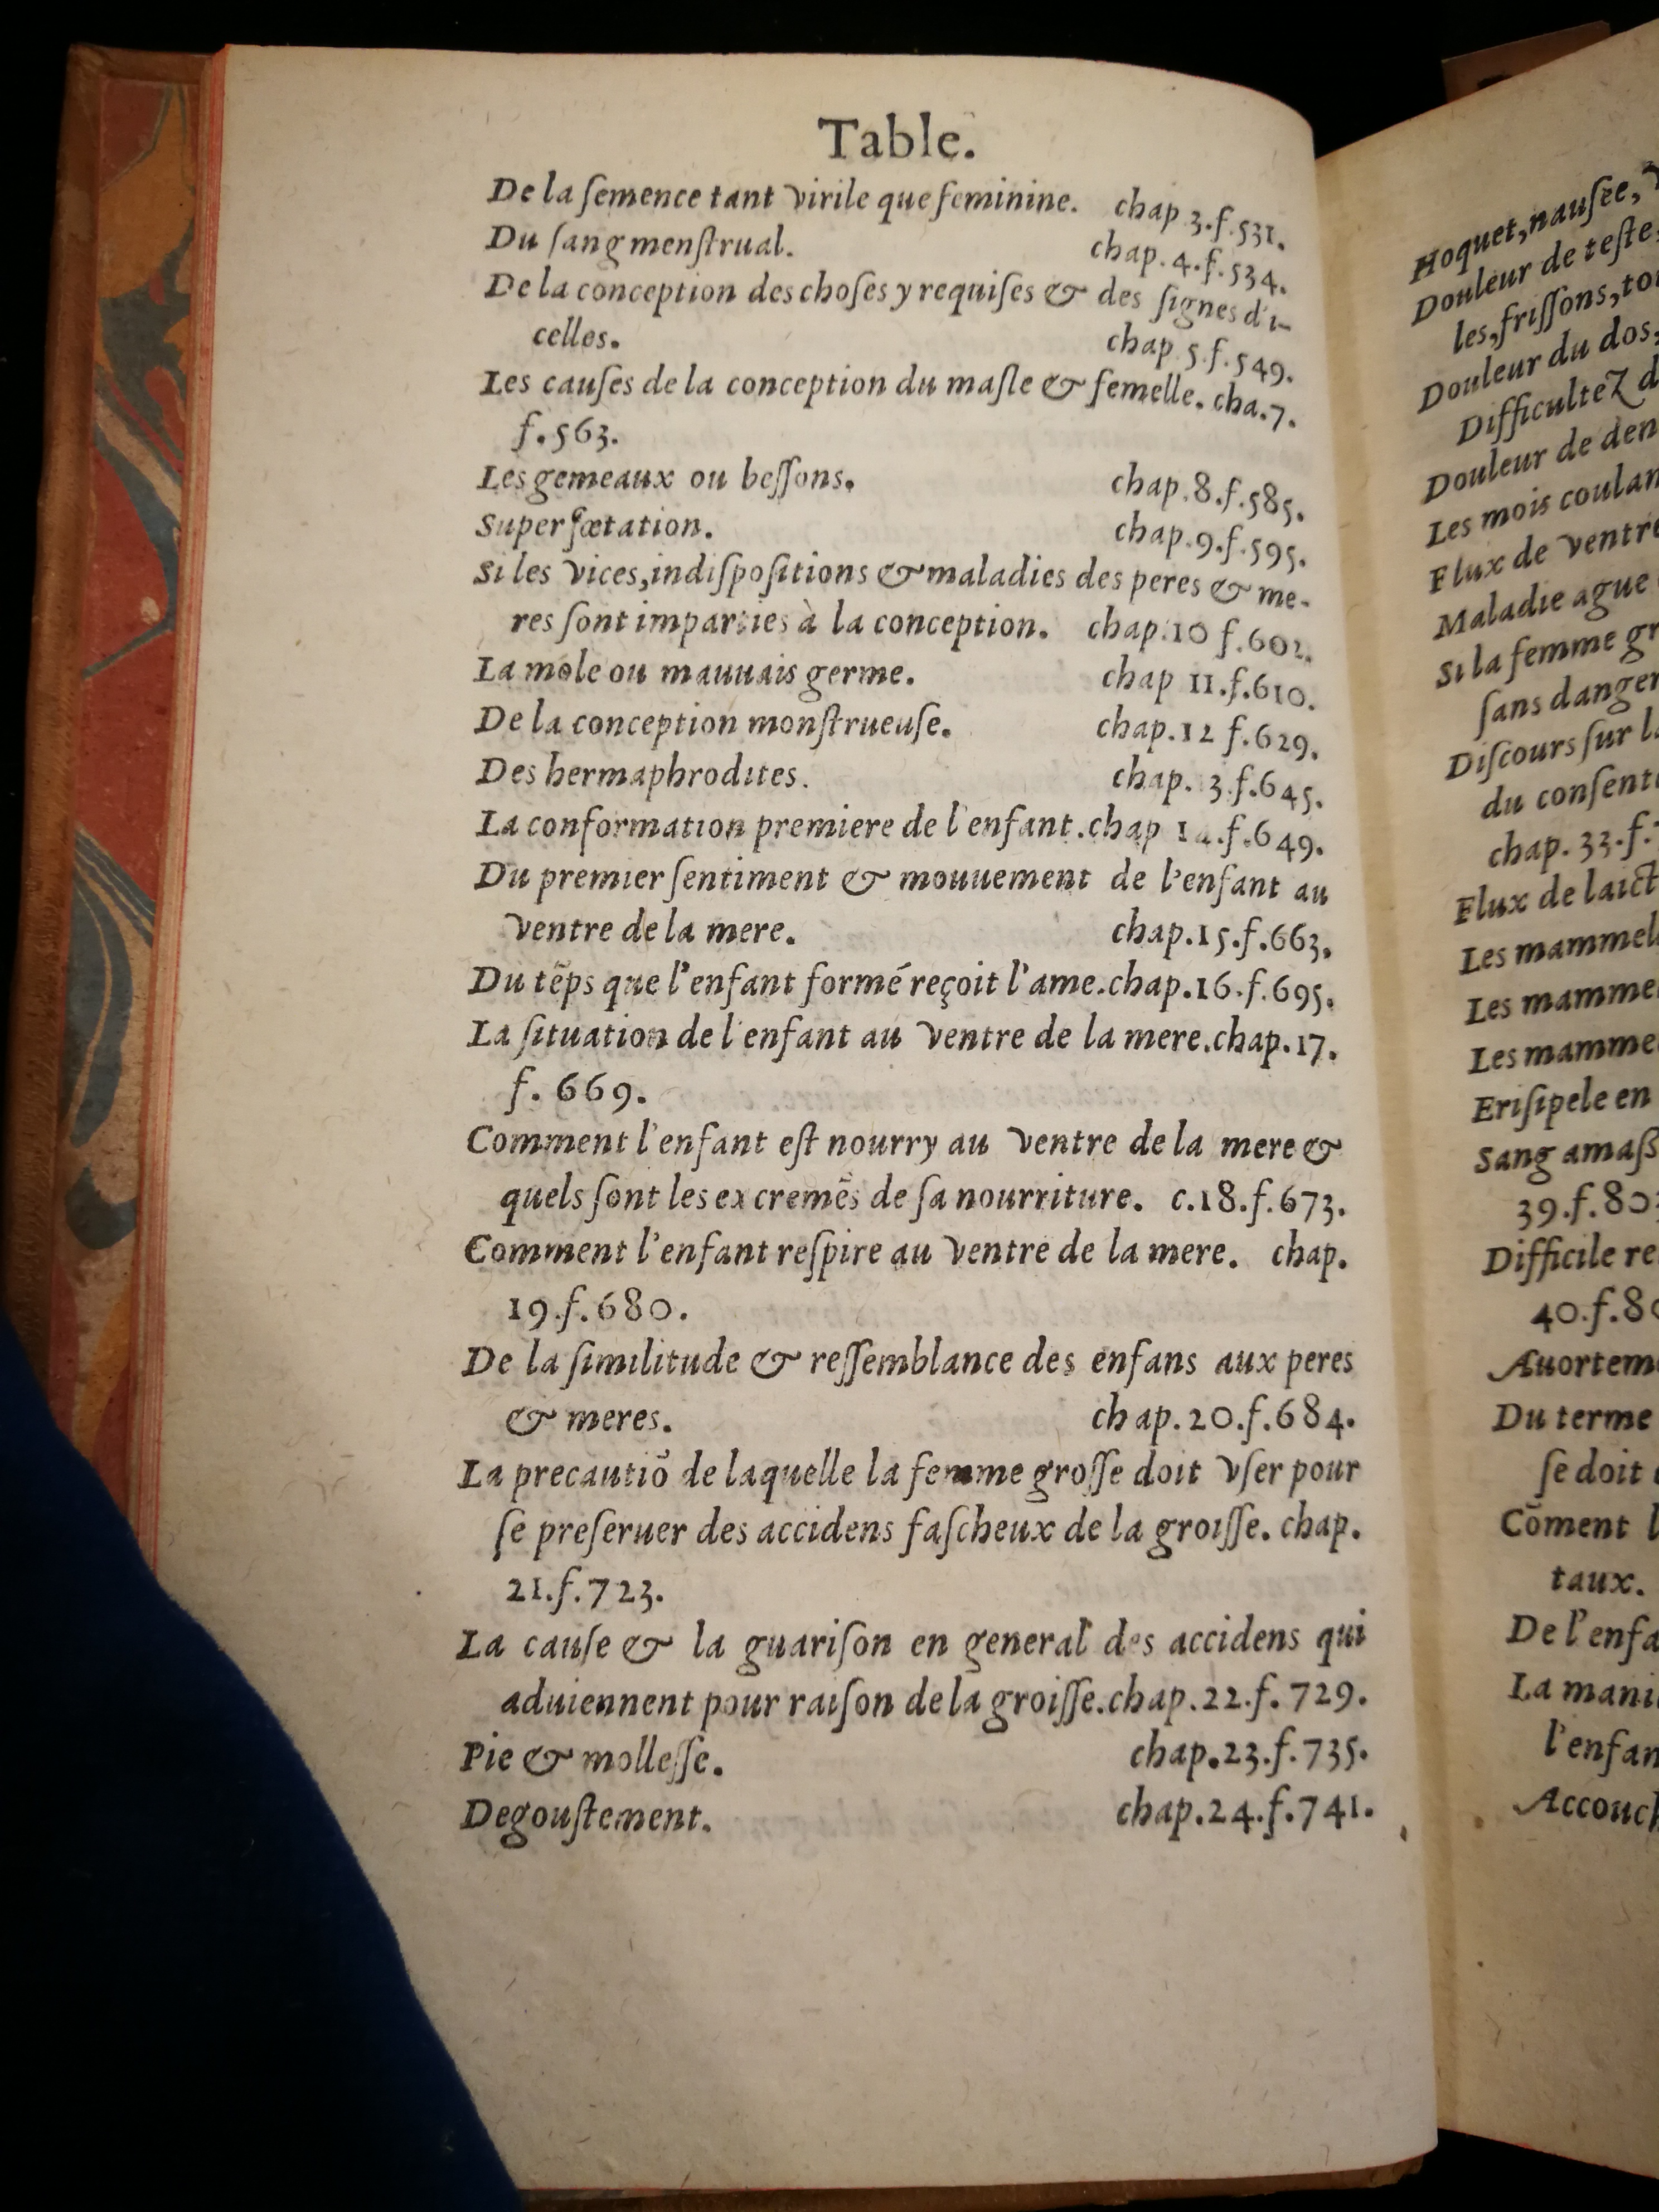 Table.
De la ſemence tant virile que feminine. chap 3.f.531.
Du ſang menſtrual. chap.4.f.534.
De la conception des choſes y requiſes & des ſignes d'i-
celles. chap 5.f.549.
Les cauſes de la conception du maſle & femelle. cha.7.
f.563.
Les gemeaux ou beſſons. chap.8.f.585.
Superfœtation. chap.9.f.595.
Si les vices, indiſpoſitions & maladies des peres & me-
res ſont imparties à la conception. chap.10 f.602.
La mole ou mauuais germe. chap 11.f.610.
De la conception monſtrueuſe. chap.12 f.629.
Des hermaphrodites. chap. 3.f.645.
La conformation premiere de l'enfant. chap 14.f.649.
Du premier ſentiment & mouuement de l'enfant au
ventre de la mere. chap.15.f.663.
Du tẽps que l'enfant formé reçoit l'ame. chap.16.f.695.
La ſituation de l'enfant au ventre de la mere. chap.17.
f. 669.
Comment l'enfant eſt nourry au ventre de la mere &
quels ſont les excremẽs de ſa nourriture. c.18.f.673.
Comment l'enfant reſpire au ventre de la mere. chap.
19.f.680.
De la ſimilitude & reſſemblance des enfans aux peres
& meres. chap.20.f.684.
La precautiõ de laquelle la femme groſſe doit vſer pour
ſe preſeruer des accidens faſcheux de la groiſſe. chap.
21.f.723.
La cauſe & la guariſon en general des accidens qui
aduiennent pour raiſon de la groiſſe. chap.22.f.729.
Pie & molleſſe. chap.23.f.735.
Degouſtement. chap.24.f.741.
Hoquet, nauſée,
Douleur de teſte
les, friſſons,
Douleur du dos,
DifficulteZ
Douleur de
Les mois
Flux de ventre
Maladie ague
Si la femme
ſans danger
Diſcours ſur
du
chap. 33.f.
Flux de laict
Les
Les
Les
Eriſipele en
Sang
39.f.80
Difficile
40.f.8
Du terme
ſe doit
Cõment
taux.
De
La